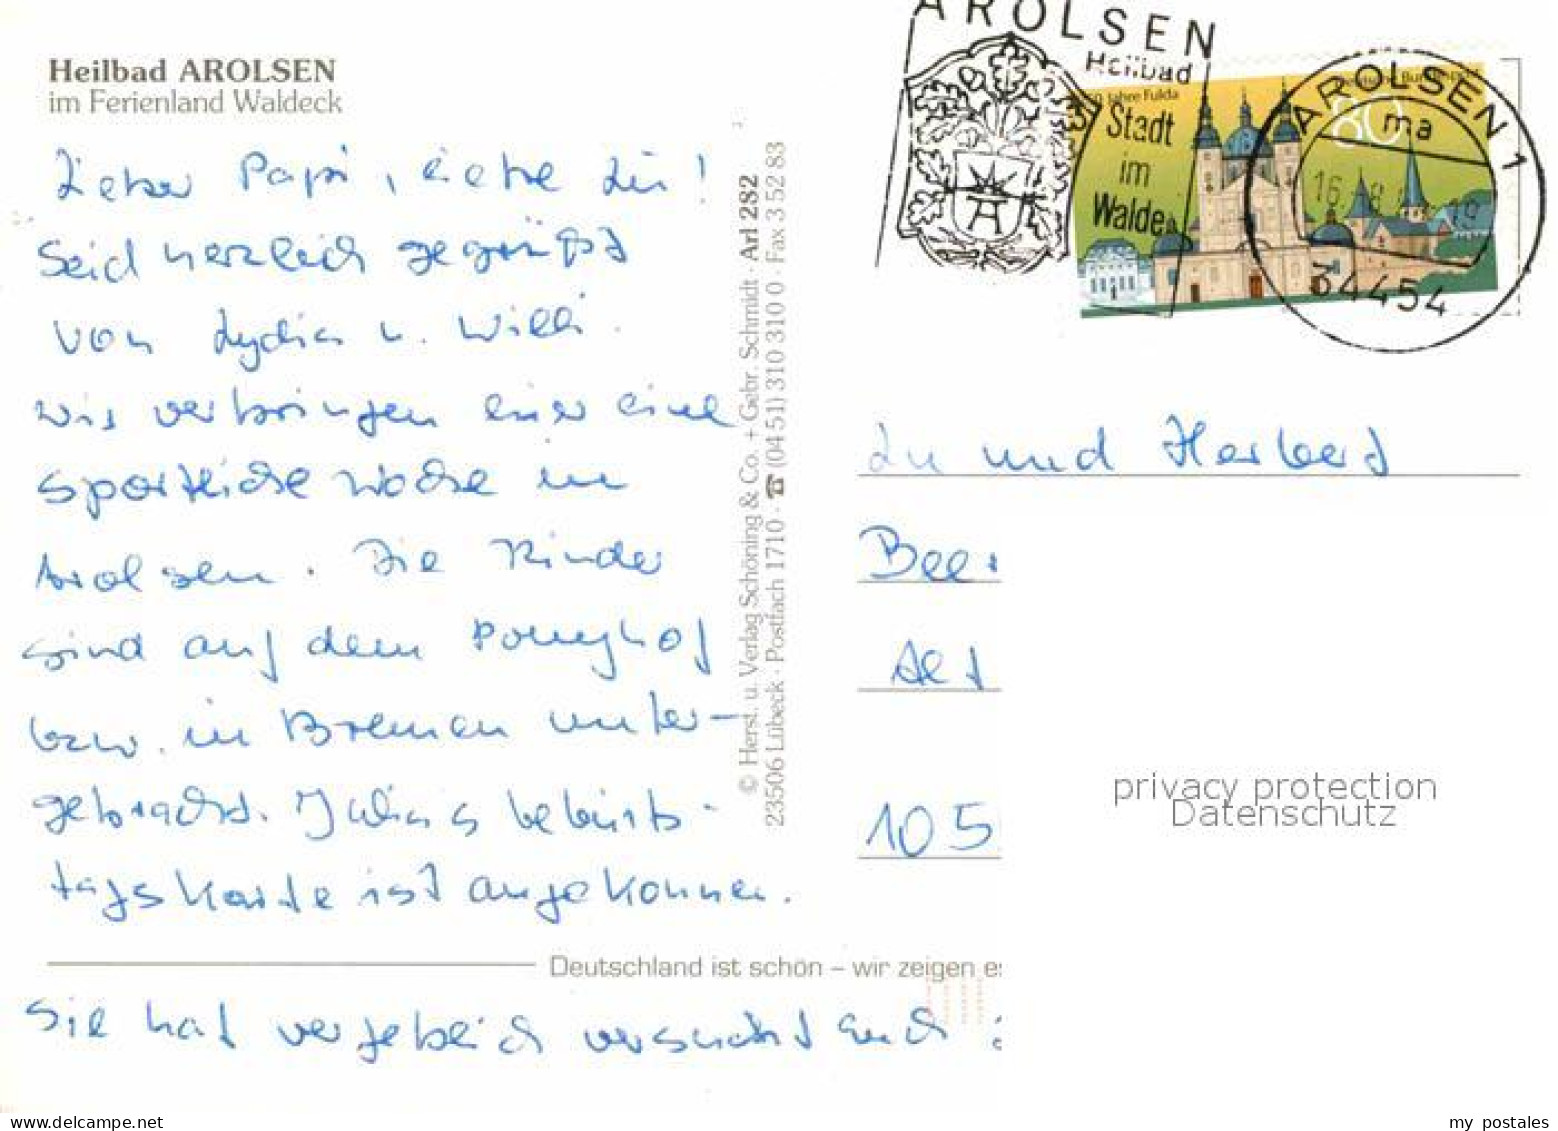 Heilbad AROLSEN
im Ferienland Waldeck
Lieber Papi, liebe Lu!
Seid herzlich gegrüßt
von Lydia u. Willi.
Wir verbringen hier eine
sportliche Woche in
Arolsen. Die Kinder
sind auf dem Ponyhof
bzw. in Bremen unter-
gebracht. Julias Geburts-
tagskarte ist angekommen.
Deutschland ist schön – wir zeigen es
Sie hat vergeblich versucht Euch
© Herst. u. Verlag Schöning & Co. + Gebr. Schmidt · Arl 282
23506 Lübeck · Postfach 1710 · ☎ (04 51) 310 310 0 · Fax 3 52 83
AROLSEN
Heilbad
Stadt
im
Walde
Jahre Fulda
80
AROLSEN 1
ma
34454
Lu und Herbert
Bee
Alt
105
privacy protection
Datenschutz
my postales